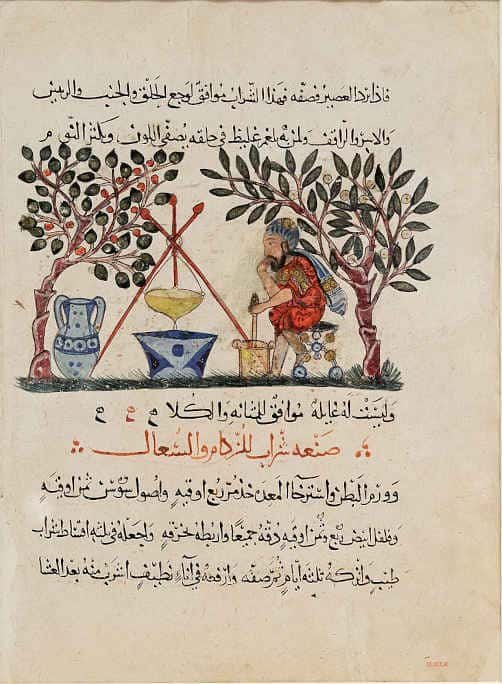 فاذا برد العصير فصفه فهذا الشراب موافق لوجع الحلق والجنب والريتين
والاسر والراقف ولمن به بلغم غليظ في حلقه يصفي اللون ويكثر النوم م
وليست له غايلة موافق للمثانه والكلا
صنعه شراب للزكام والسعال
وورم البطن واسترخا المعده خذ مر ربع اوقيه واصول سوس ثمن اوقيه
وفلفل ابيض ربع وثمن اوقيه دقه جميعا واربطه بخرقه واجعله في ثلثه اقساط شراب
طيب واتركه ثلثه ايام ثم صفه وارفعه في اناء نظيف اشرب منه بعد العشا